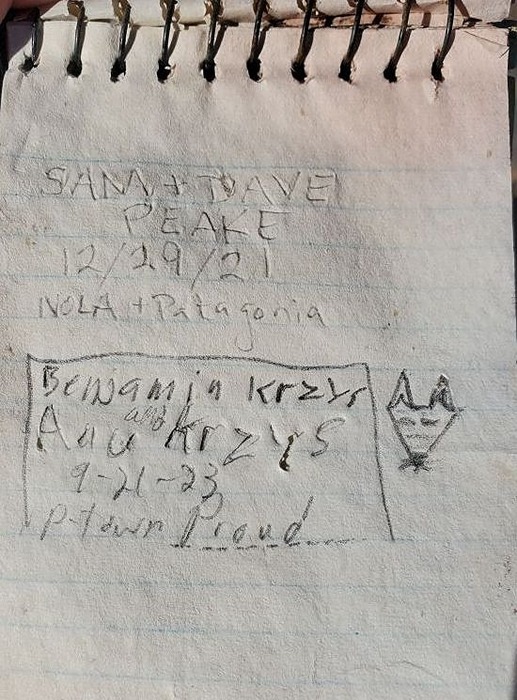 SAM + DAVE
PEAKE
12/29/21
NOLA + Patagonia
Benjamin Krzys
and
Krzys
9-21-23
P-town Proud